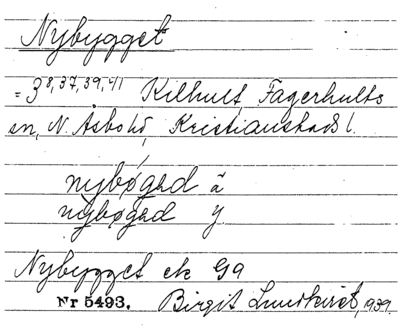 Nybygget
= 3 8, 37, 39, 41 Kilhult, Fagerhults
sn, N. Åsbo hd, Kristianstads l.
nybøgəd ä
nybøgəd y
Nybygget ek G9
Nr 5493. Birgit Lundkvist, 1939.